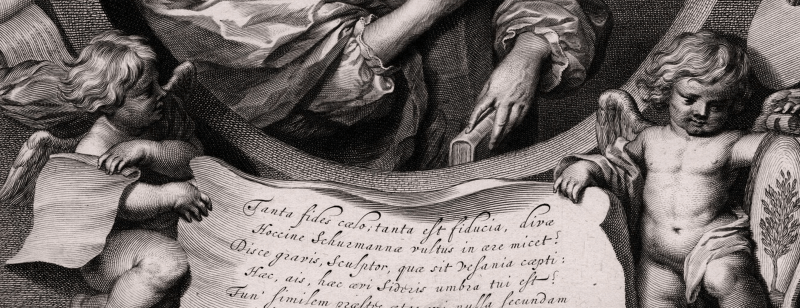 Tanta fides cælo, tanta est fiducia, divæ
Hoccine Schurmannæ vultus in ære micet?
Disce gravis, Sculptor, quæ sit vesania cæpti:
Hæc, ais, hæc ævi Sideris umbra tui est?
similem nulla secundam